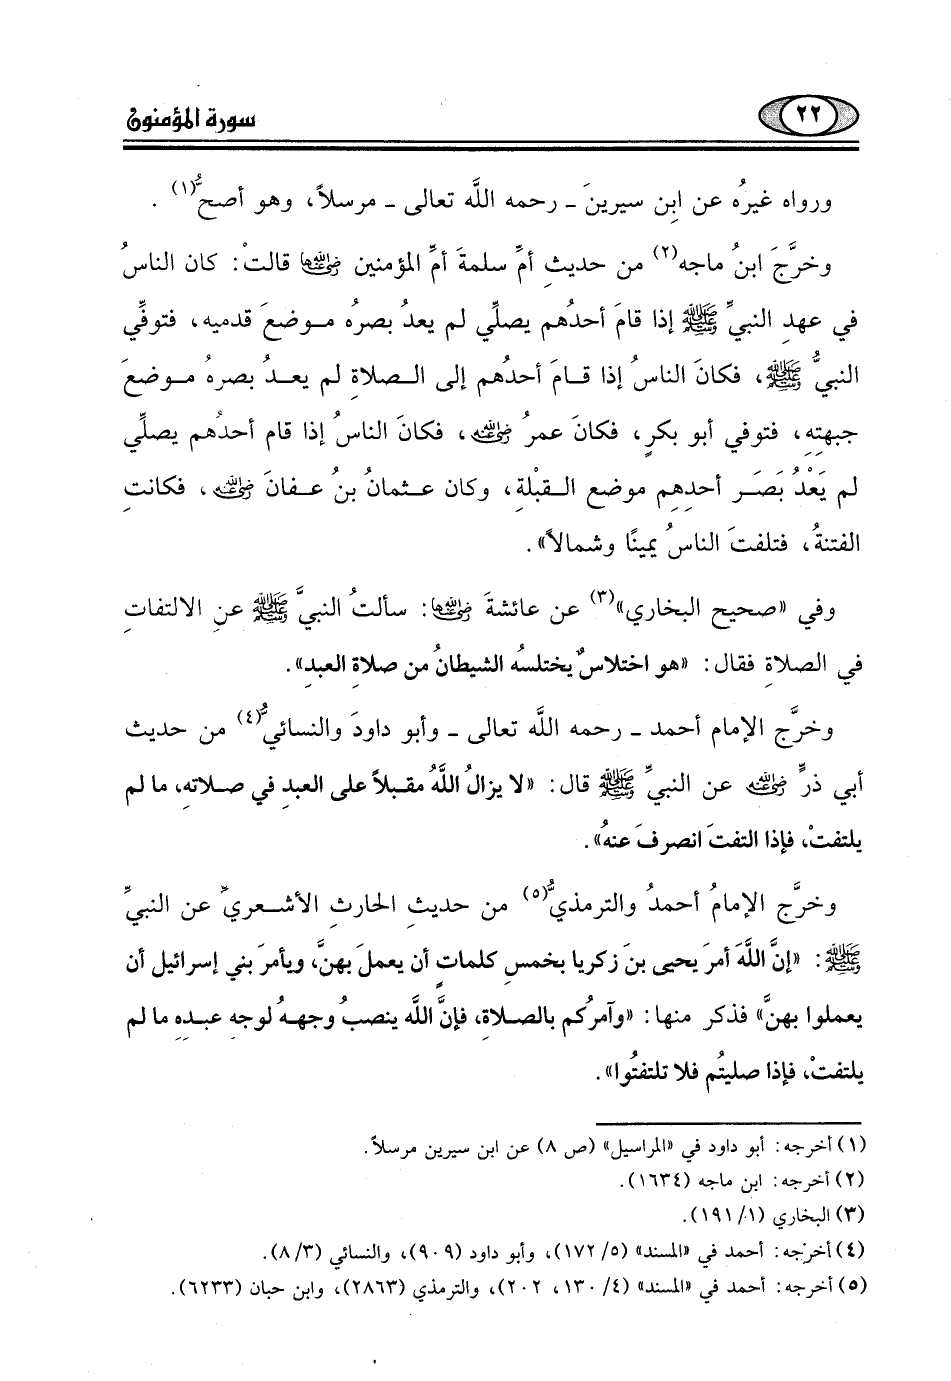 ٢٢
سورة المؤمنون
ورواه غيرُه عن ابنِ سيرينَ ـ رحمه اللَّه تعالى ـ مرسلاً، وهو أصحُّ(١) .
وخرَّجَ ابنُ ماجه(٢) من حديثِ أمِّ سلمةَ أمِّ المؤمنين رضي الله عنها قالتْ: كان الناسُ
في عهدِ النبيِّ ﷺ إذا قامَ أحدُهم يصلِّي لم يعدُ بصرُه موضعَ قدميه، فتوفِّي
النبيُّ ﷺ، فكانَ الناسُ إذا قامَ أحدُهم إلى الصلاةِ لم يعدُ بصرهُ موضعَ
جبهتِهِ، فتوفي أبو بكرٍ، فكانَ عمرُ رضي الله عنه، فكانَ الناسُ إذا قام أحدُهم يصلِّي
لم يَعْدُ بَصَر أحدِهِم موضع القبْلةِ، وكان عثمانُ بنُ عفانَ رضي الله عنه، فكانتِ
الفتنةُ، فتلفتَ الناسُ يمينًا وشمالاً».
وفي «صحيح البخاري»(٣) عن عائشةَ رضي الله عنها: سألتُ النبيَّ ﷺ عنِ الالتفاتِ
في الصلاةِ فقال: «هو اختلاسٌ يختلسُه الشيطانُ من صلاةِ العبدِ».
وخرَّج الإمام أحمد ـ رحمه اللَّه تعالى ـ وأبو داودَ والنسائيُّ(٤) من حديث
أبي ذرٍّ رضي الله عنه عن النبيِّ ﷺ قال: «لا يزالُ اللَّهُ مقبلاً على العبدِ في صلاته، ما لم
يلتفتْ، فإذا التفتَ انصرفَ عنهُ».
وخرَّج الإمامُ أحمدُ والترمذيُّ(٥) من حديثِ الحارثِ الأشعريِّ عن النبيِّ
ﷺ: «إنَّ اللَّهَ أمرَ يحيى بنَ زكريا بخمسِ كلماتٍ أن يعملَ بهنَّ، ويأمرَ بني إسرائيل أن
يعملوا بهنَّ» فذكر منها: «وآمرُكم بالصلاةِ، فإنَّ اللَّه ينصبُ وجههُ لوجهِ عبدِهِ ما لم
يلتفتْ، فإذا صليتُم فلا تلتفتُوا».
(١) أخرجه: أبو داود في «المراسيل» (ص ٨) عن ابن سيرين مرسلاً.
(٢) أخرجه: ابن ماجه (١٦٣٤).
(٣) البخاري (١/ ١٩١).
(٤) أخرجه: أحمد في «المسند» (٥/ ١٧٢)، وأبو داود (٩٠٩)، والنسائي (٣/ ٨).
(٥) أخرجه: أحمد في «المسند» (٤/ ١٣٠، ٢٠٢)، والترمذي (٢٨٦٣)، وابن حبان (٦٢٣٣).